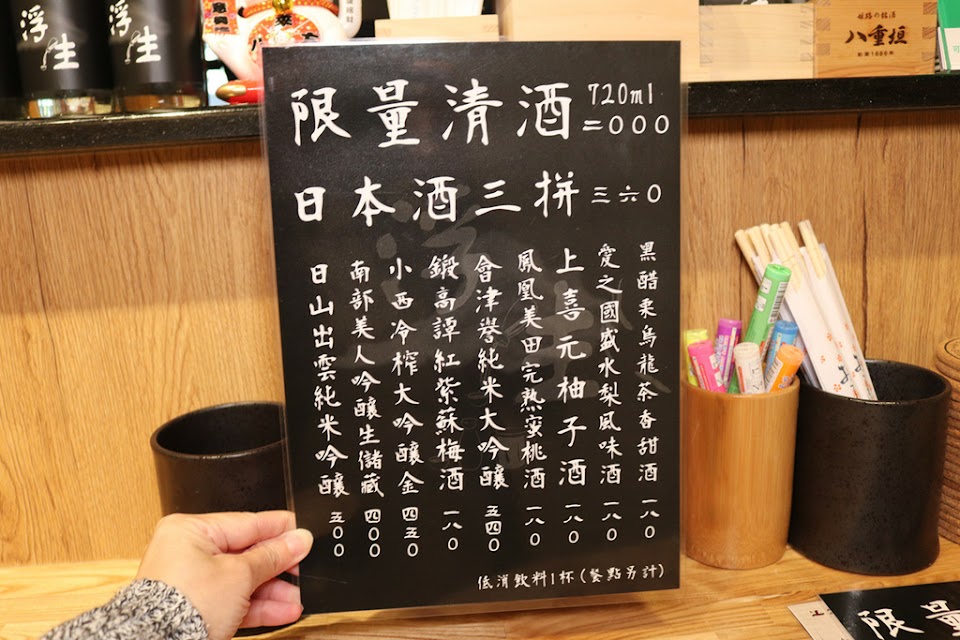 浮生
浮生
姫路の銘酒
八重垣
限量清酒
720ml
二〇〇〇
日本酒三拼 三六〇
黑醋栗烏龍茶香甜酒 一八〇
愛之國盛水梨風味酒 一八〇
上喜元柚子酒 一八〇
鳳凰美田完熟蜜桃酒 一八〇
會津譽純米大吟釀 五四〇
鍛高譚紅紫蘇梅酒 一八〇
小西冷榨大吟釀金 四五〇
南部美人吟釀生儲藏 四〇〇
日山出雲純米吟釀 五〇〇
低消飲料1杯(餐點另計)
限量